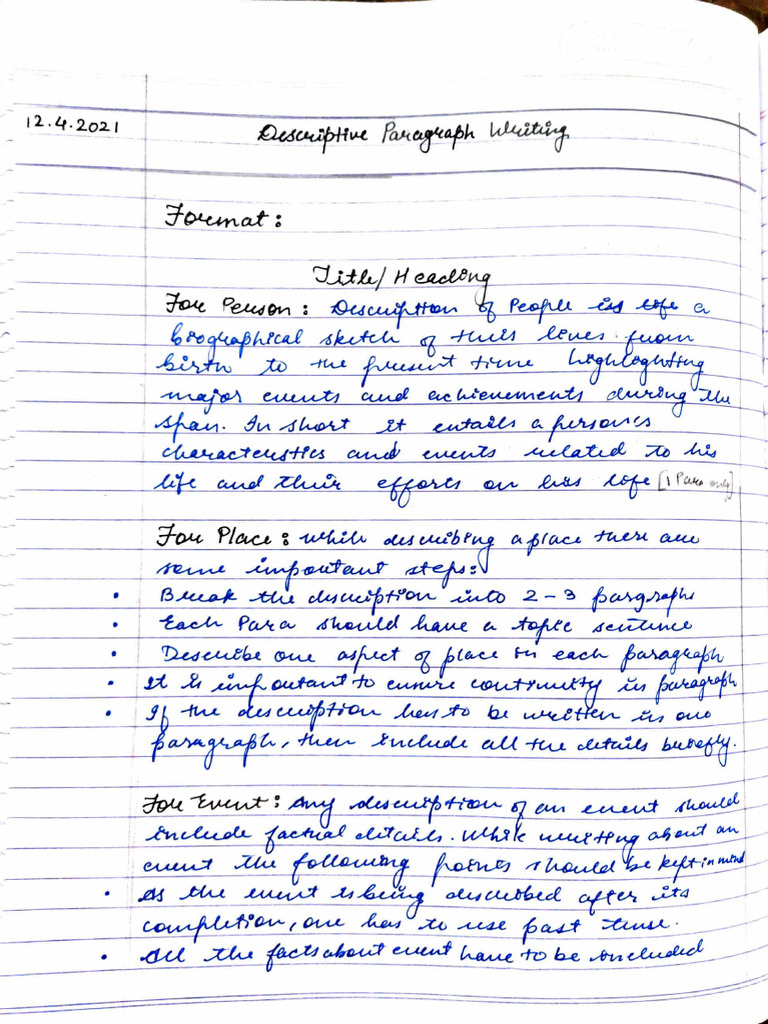 12.4.2021
Descriptive Paragraph Writing
Format:
Title/Heading
For Person: Description of People is a
biographical sketch of their lives from
birth to the present time highlighting
major events and achievements during the
span. In short it entails a person's
characteristics and events related to his
life and their efforts on his life [1 Para only]
For Place: While describing a place there are
some important steps:
• Break the description into 2-3 pargraphs
• Each Para should have a topic sentence
• Describe one aspect of place in each paragraph
• It is important to ensure continuity in paragraph
• If the description has to be written in one
paragraph, then include all the details briefly.
For Event: Any description of an event should
include factual details. While writing about an
event the following points should be kept in mind
• As the event is being described after its
completion, one has to use past tense.
• All the facts about event have to be included